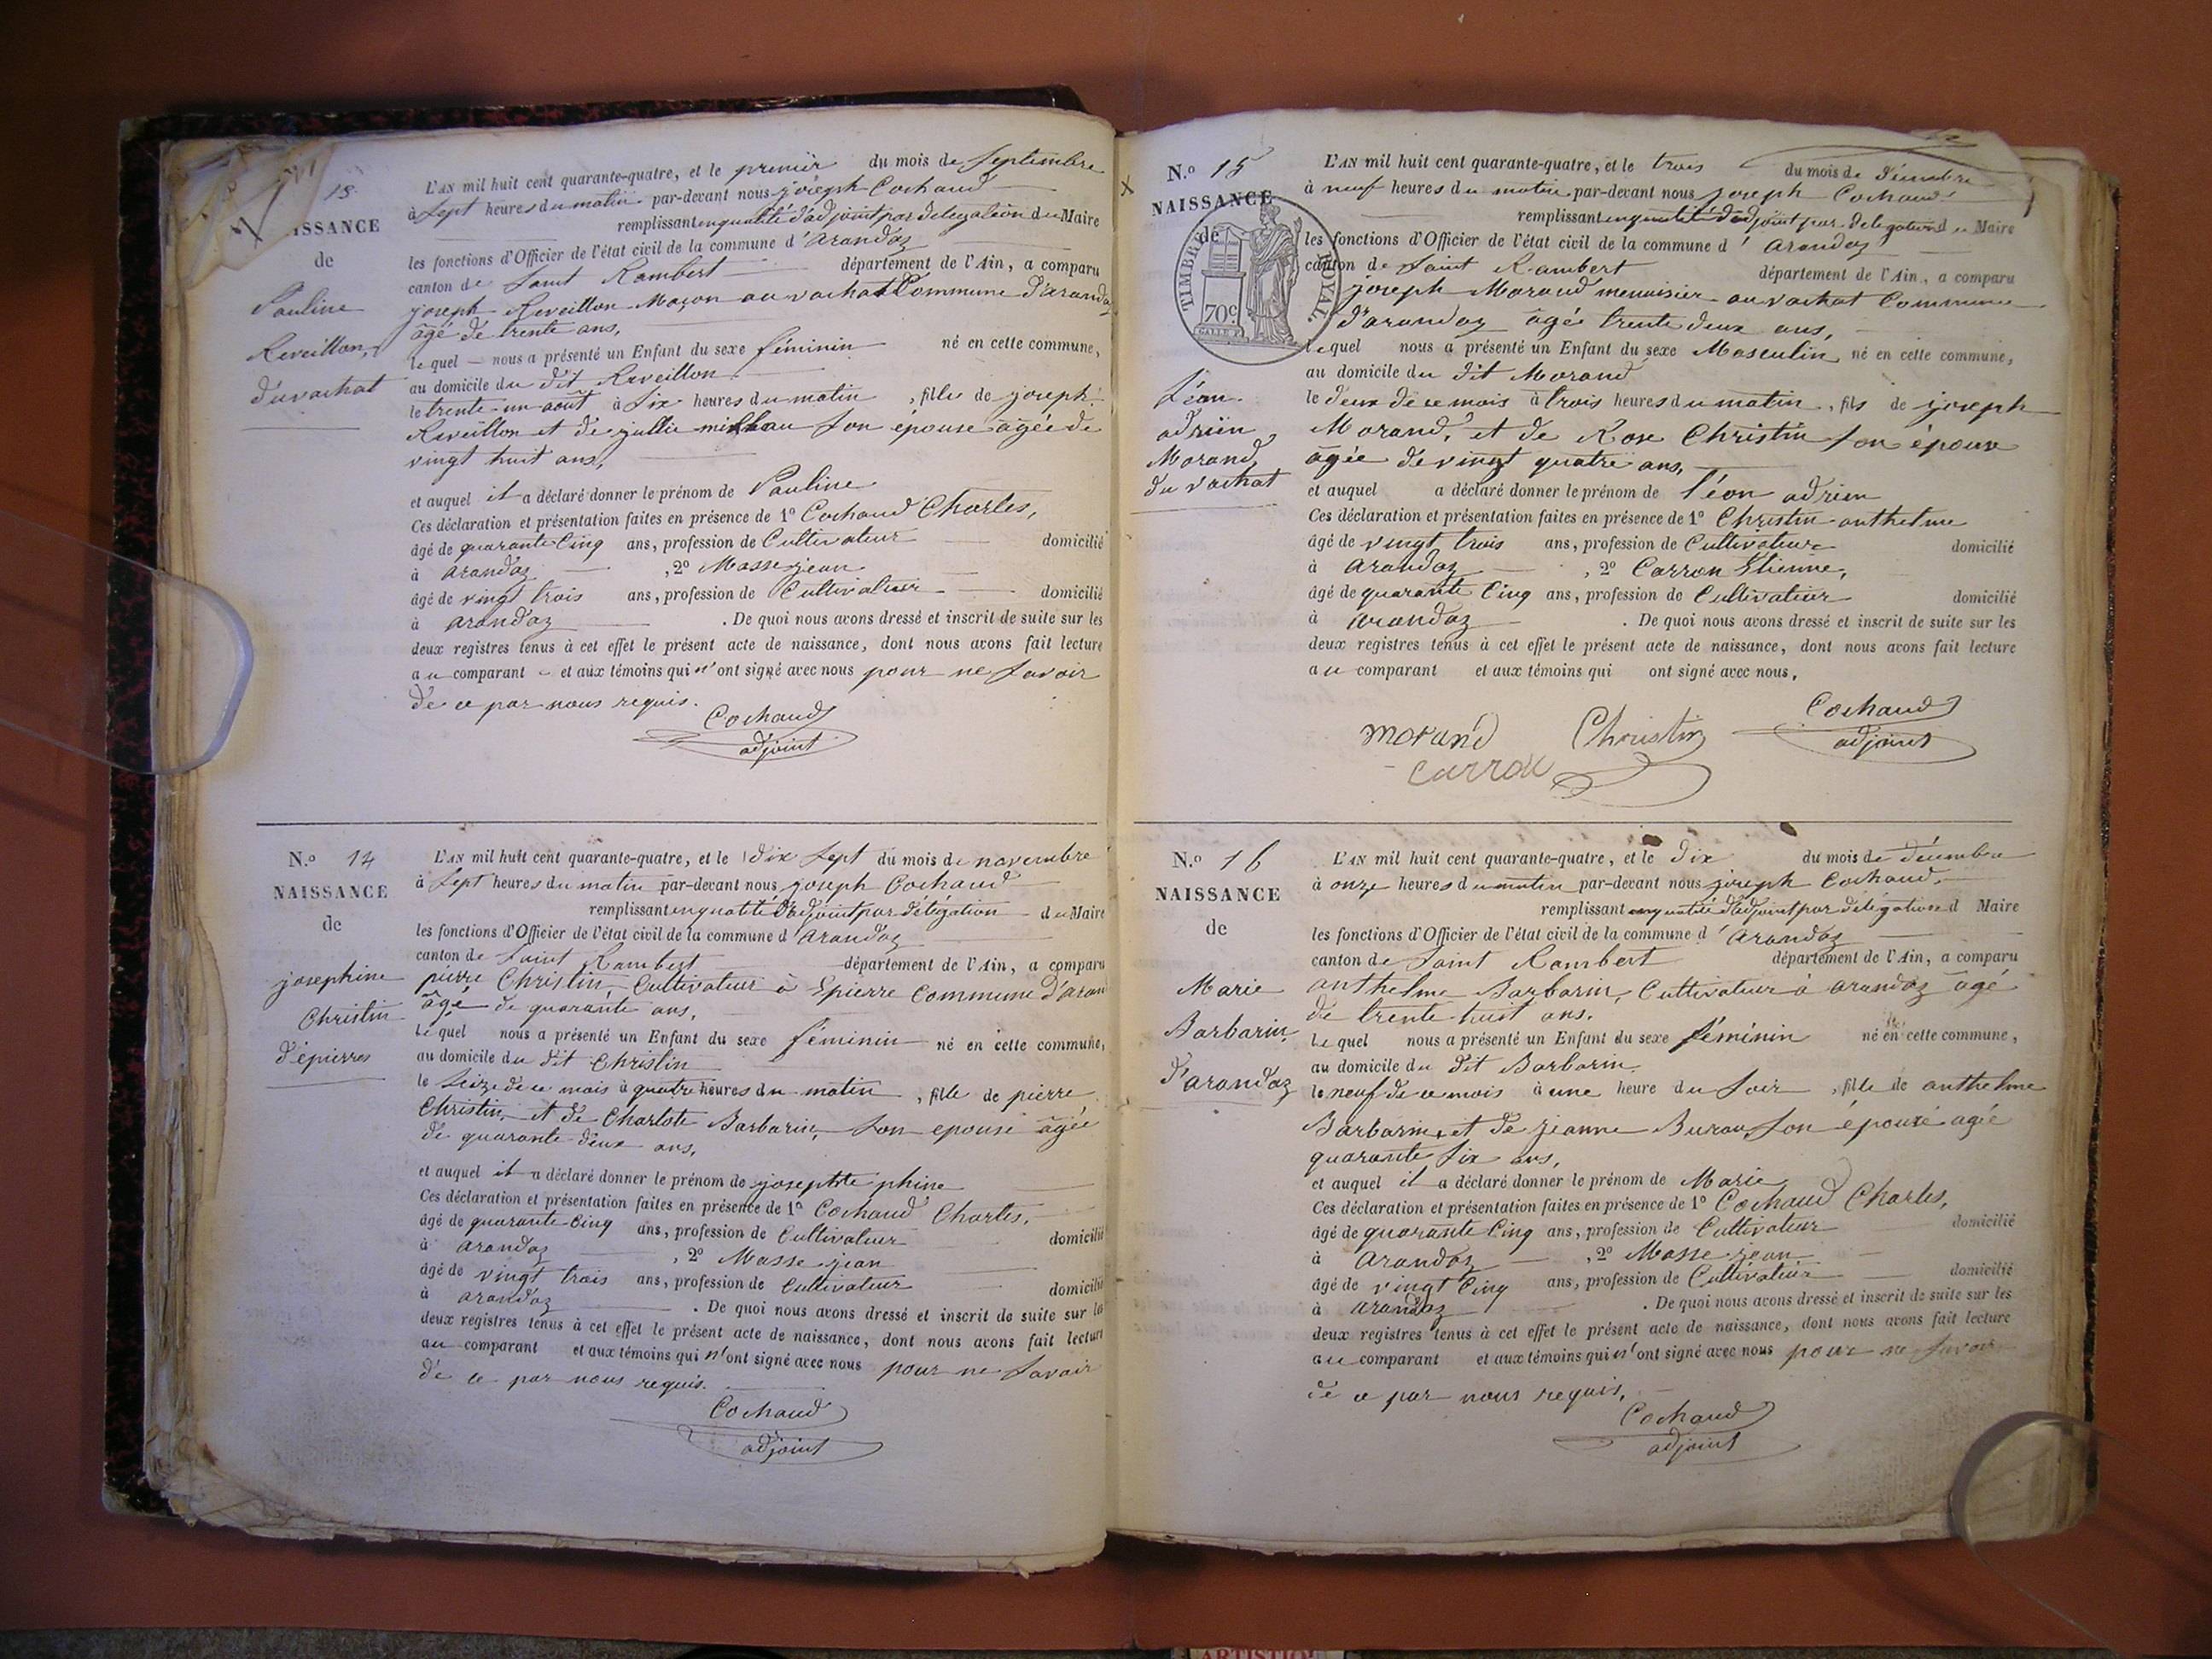 13.
ISSANCE
de
Pauline
Reveillon,
du vachat
L'AN mil huit cent quarante-quatre, et le premier du mois de Septembre
à Sept heures du matin par-devant nous joseph Cochaud
remplissant en qualité d'adjoint par delegation du Maire
les fonctions d'Officier de l'état civil de la commune d'arandaz
canton de Saint Rambert département de l'Ain, a comparu
joseph Reveillon Maçon au vachat Commune d'arandaz
âgé de trente ans,
lequel nous a présenté un Enfant du sexe féminin né en cette commune,
au domicile du dit Reveillon
le trente-un août à Six heures du matin, fille de joseph
Reveillon et de jullie son épouse âgée de
vingt huit ans,
et auquel il a déclaré donner le prénom de Pauline
Ces déclaration et présentation faites en présence de 1º Cochaud Charles,
âgé de quarante Cinq ans, profession de Cultivateur domicilié
à arandaz, 2º Masse jean
âgé de vingt trois ans, profession de Cultivateur domicilié
à arandaz. De quoi nous avons dressé et inscrit de suite sur les
deux registres tenus à cet effet le présent acte de naissance, dont nous avons fait lecture
au comparant et aux témoins qui n'ont signé avec nous pour ne Savoir
de ce par nous requis.
Cochaud
adjoint
N.º 14
NAISSANCE
de
josephine
Christin
d'épierres
L'AN mil huit cent quarante-quatre, et le dix Sept du mois de novembre
à Sept heures du matin par-devant nous joseph Cochaud
remplissant en qualité d'adjoint par délégation du Maire
les fonctions d'Officier de l'état civil de la commune d'arandaz
canton de Saint Rambert département de l'Ain, a comparu
pierre Christin, Cultivateur à Epierre Commune d'aran
âgé de quarante ans,
lequel nous a présenté un Enfant du sexe féminin né en cette commune,
au domicile du dit Christin
le Seize de ce mois à quatre heures du matin, fille de pierre
Christin, et de Charlote Barbarin, Son epouse âgée
de quarante deux ans,
et auquel il a déclaré donner le prénom de josephte phine
Ces déclaration et présentation faites en présence de 1º Cochaud Charles,
âgé de quarante Cinq ans, profession de Cultivateur domicilié
à arandaz, 2º Masse jean
âgé de vingt trois ans, profession de Cultivateur domicilié
à arandaz. De quoi nous avons dressé et inscrit de suite sur les
deux registres tenus à cet effet le présent acte de naissance, dont nous avons fait lecture
au comparant et aux témoins qui n'ont signé avec nous pour ne Savoir
de ce par nous requis.
Cochaud
adjoint
N.º 15
NAISSANCE
de
TIMBRE ROYAL.
70c
Léon
adrien
Morand,
du vachat
L'AN mil huit cent quarante-quatre, et le trois du mois de décembre
à neuf heures du matin par-devant nous joseph Cochaud
remplissant en qualité d'adjoint par delegation du Maire
les fonctions d'Officier de l'état civil de la commune d'arandaz
canton de Saint Rambert département de l'Ain, a comparu
joseph Morand menuisier au vachat Commune
d'arandaz âgé trente deux ans,
lequel nous a présenté un Enfant du sexe Masculin, né en cette commune,
au domicile du dit Morand
le deux de ce mois à trois heures du matin, fils de joseph
Morand, et de Rose Christin Son épouse
âgée de vingt quatre ans,
et auquel a déclaré donner le prénom de Léon adrien
Ces déclaration et présentation faites en présence de 1º Christin anthelme
âgé de vingt trois ans, profession de Cultivateur domicilié
à arandaz, 2º Carron Etienne,
âgé de quarante Cinq ans, profession de Cultivateur domicilié
à arandaz. De quoi nous avons dressé et inscrit de suite sur les
deux registres tenus à cet effet le présent acte de naissance, dont nous avons fait lecture
au comparant et aux témoins qui ont signé avec nous,
morand Christin Cochaud
carron adjoint
N.º 16
NAISSANCE
de
Marie
Barbarin,
d'arandaz
L'AN mil huit cent quarante-quatre, et le dix du mois de décembre
à onze heures du matin par-devant nous joseph Cochaud,
remplissant en qualité d'adjoint par délégation d Maire
les fonctions d'Officier de l'état civil de la commune d'arandaz
canton de Saint Rambert département de l'Ain, a comparu
anthelme Barbarin, Cultivateur à arandaz âgé
de trente huit ans,
lequel nous a présenté un Enfant du sexe féminin né en cette commune,
au domicile du dit Barbarin
le neuf de ce mois à une heure du Soir, fille de anthelme
Barbarin, et de jeanne Buran Son épouse agée
quarante Six ans,
et auquel il a déclaré donner le prénom de Marie
Ces déclaration et présentation faites en présence de 1º Cochaud Charles,
âgé de quarante Cinq ans, profession de Cultivateur domicilié
à arandaz, 2º Masse jean
âgé de vingt Cinq ans, profession de Cultivateur domicilié
à arandaz. De quoi nous avons dressé et inscrit de suite sur les
deux registres tenus à cet effet le présent acte de naissance, dont nous avons fait lecture
au comparant et aux témoins qui n'ont signé avec nous pour ne Savoir
de ce par nous requis,
Cochaud
adjoint